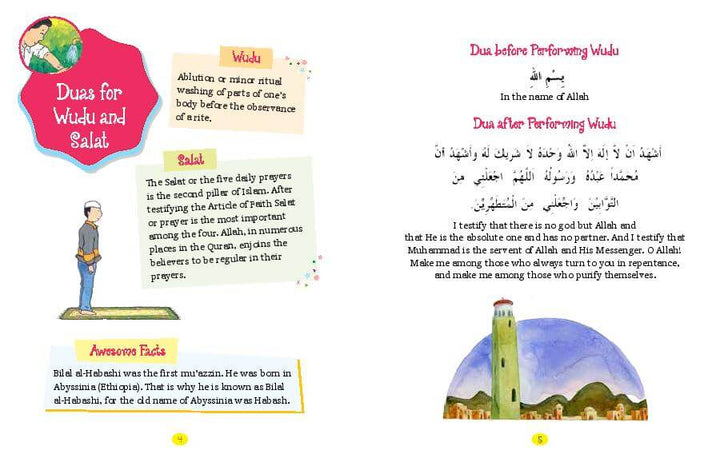 Duas for
Wudu and
Salat
Wudu
Ablution or minor ritual
washing of parts of one's
body before the observance
of a rite.
Salat
The Salat or the five daily prayers
is the second pillar of Islam. After
testifying the Article of Faith Salat
or prayer is the most important
among the four. Allah, in numerous
places in the Quran, enjoins the
believers to be regular in their
prayers.
Awesome Facts
Bilal al-Habashi was the first mu'azzin. He was born in
Abyssinia (Ethiopia). That is why he is known as Bilal
al-Habashi, for the old name of Abyssinia was Habash.
4
Dua before Performing Wudu
بِسْمِ اللهِ
In the name of Allah
Dua after Performing Wudu
أَشْهَدُ أَنْ لاَ إِلَهَ إِلاَّ اللهُ وَحْدَهُ لاَ شَرِيكَ لَهُ وَأَشْهَدُ أَنَّ
مُحَمَّداً عَبْدُهُ وَرَسُولُهُ اَللَّهُمَّ اجْعَلْنِي مِنَ
التَّوَّابِينَ وَاجْعَلْنِي مِنَ الْمُتَطَهِّرِينَ.
I testify that there is no god but Allah and
that He is the absolute one and has no partner. And I testify that
Muhammad is the servent of Allah and His Messenger. O Allah!
Make me among those who always turn to you in repentence,
and make me among those who purify themselves.
5